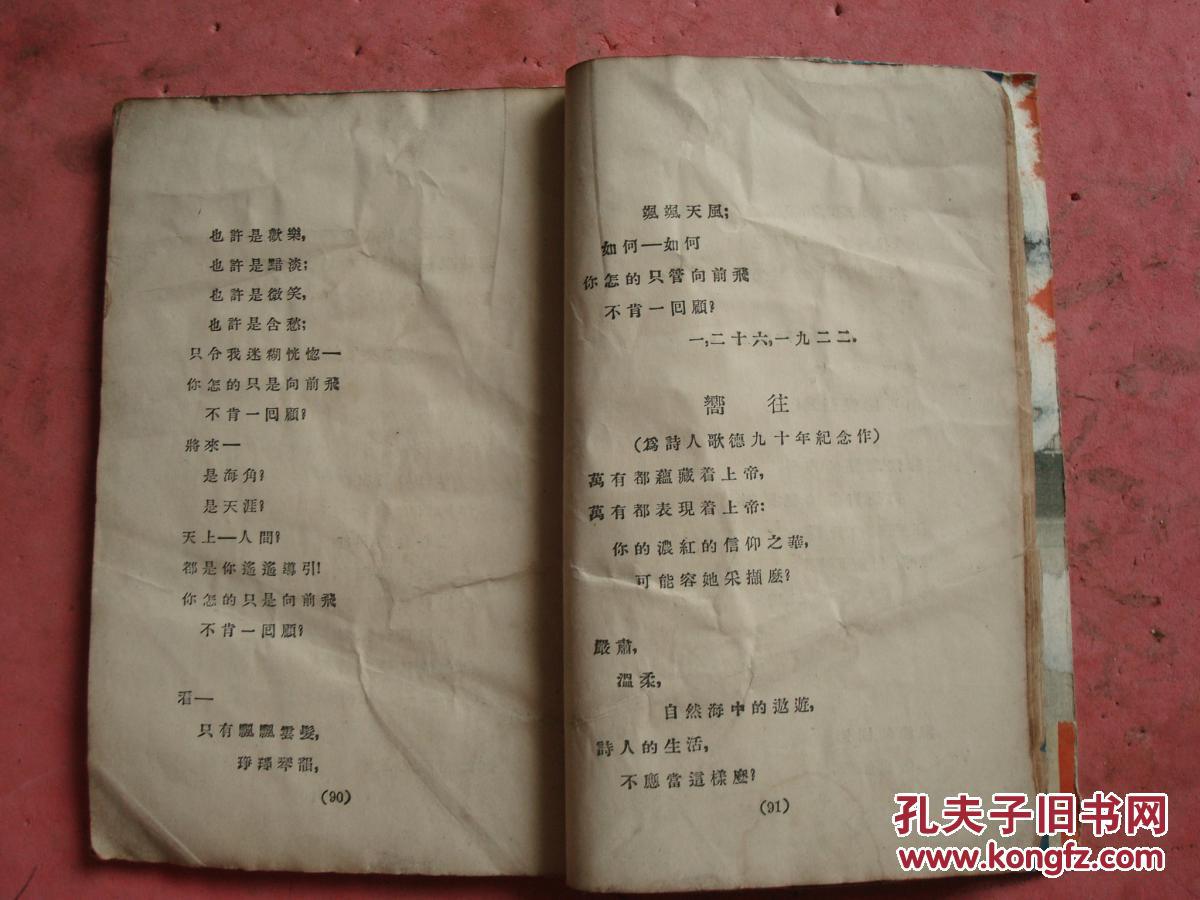 也許是歡樂，
也許是黯淡；
也許是微笑，
也許是含愁；
只令我迷糊恍惚—
你怎的只是向前飛
不肯一回顧？
將來—
是海角？
是天涯？
天上—人間？
都是你遙遙導引！
你怎的只是向前飛
不肯一回顧？
看—
只有飄飄雲髮，
琤琤琴韻，
(90)
颯颯天風；
如何—如何
你怎的只管向前飛
不肯一回顧？
一，二十六，一九二二．
嚮往
（爲詩人歌德九十年紀念作）
萬有都蘊藏着上帝，
萬有都表現着上帝：
你的濃紅的信仰之華，
可能容她采擷麽？
嚴肅，
溫柔，
自然海中的遨遊，
詩人的生活，
不應當這樣麽？
(91)
孔夫子旧书网
www.kongfz.com